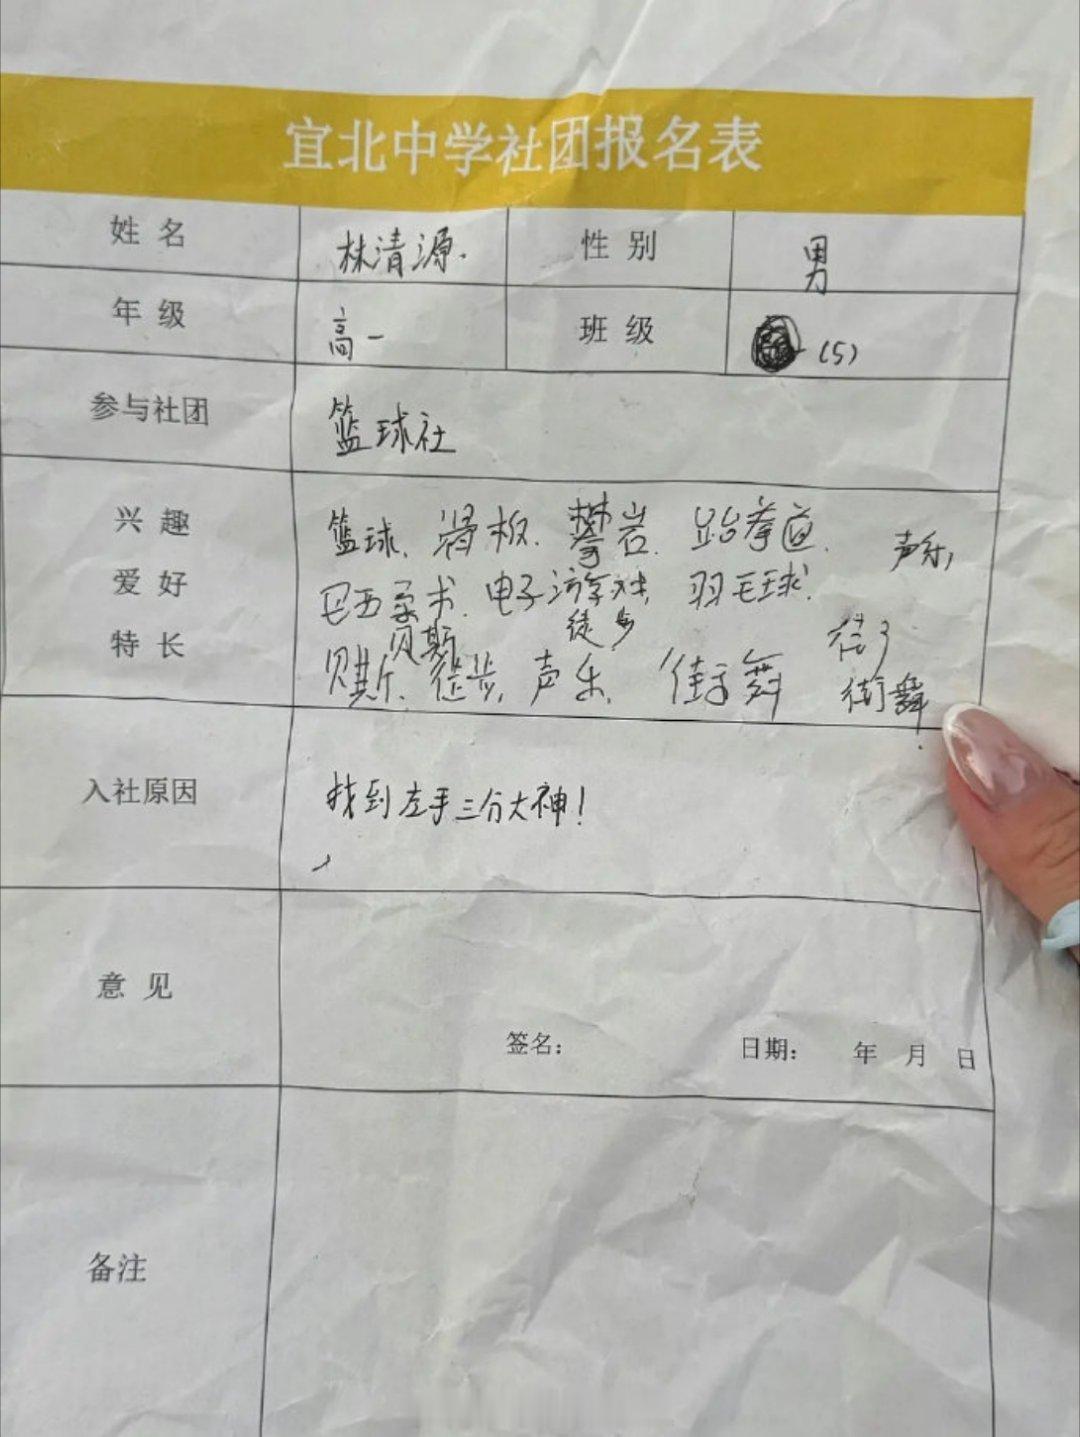 宜北中学社团报名表
姓名 林清源. 性别 男
年级 高一 班级 (5)
参与社团 篮球社
兴趣 篮球、滑板、攀岩、跆拳道、 声乐,
爱好 巴西柔术、电子游戏、羽毛球、
贝斯 徒步 街
特长 贝斯、徒步、声乐、街舞 街舞
入社原因 找到左手三分大神!
意见
签名: 日期: 年 月 日
备注